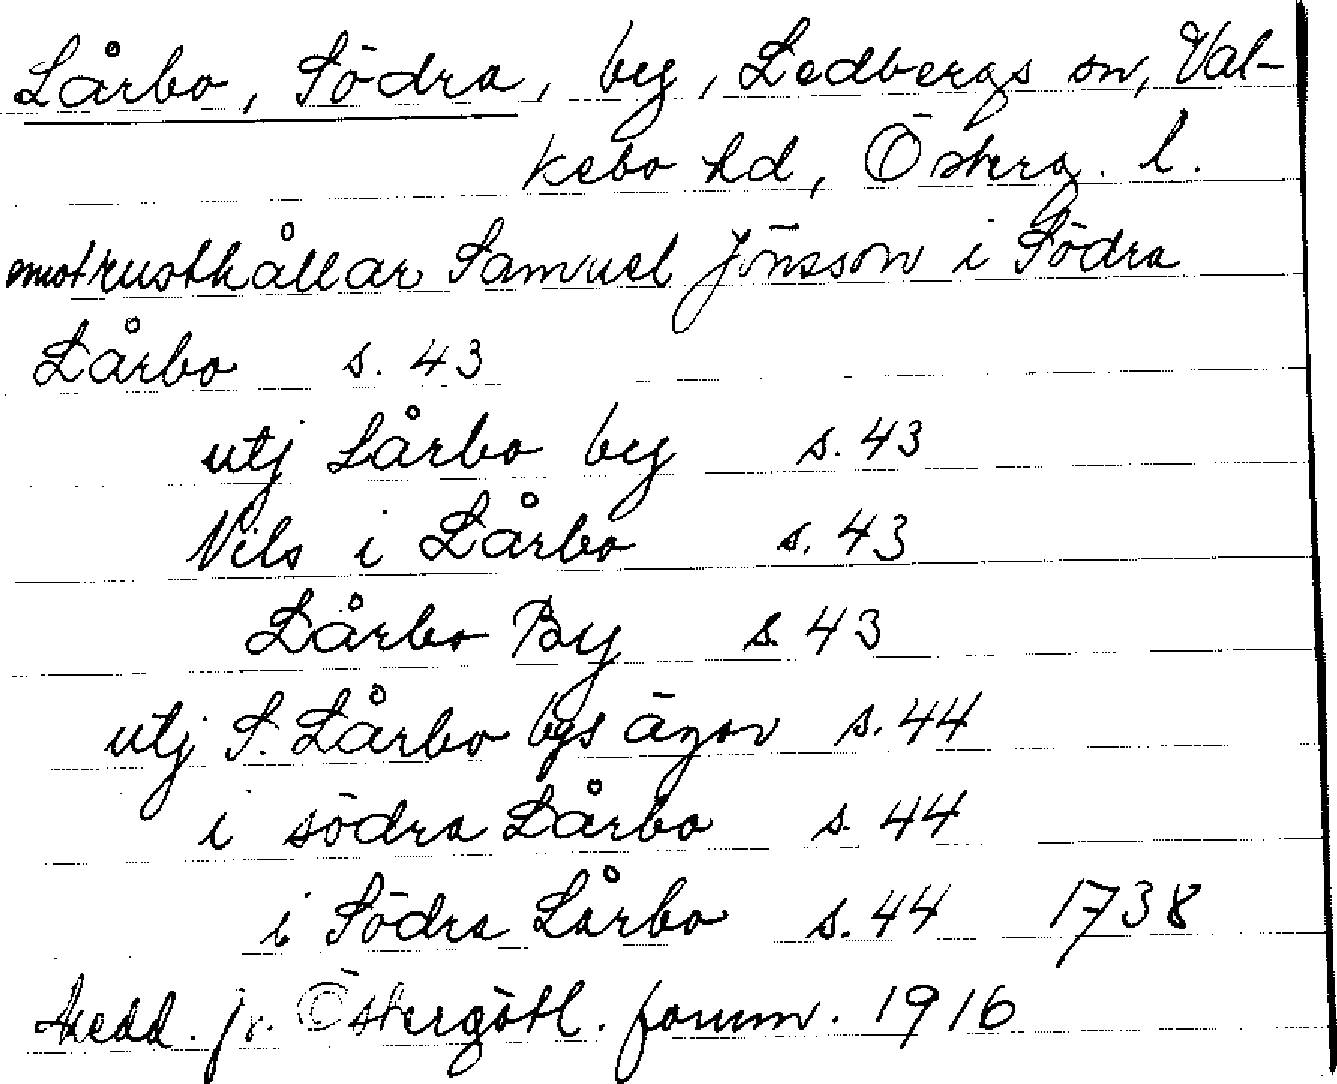 Lårbo, Södra, by, Ledbergs sn, Val-
kebo hd, Österg. l.
mot rusthållar Samuel Jönsson i Södra
Lårbo s. 43
utj Lårbo by s. 43
Nils i Lårbo s. 43
Lårbo By s 43
utj S. Lårbo bys ägor s. 44
i södra Lårbo s. 44
i Södra Lårbo s. 44 1738
Medd. fr. Östergötl. fornm. 1916